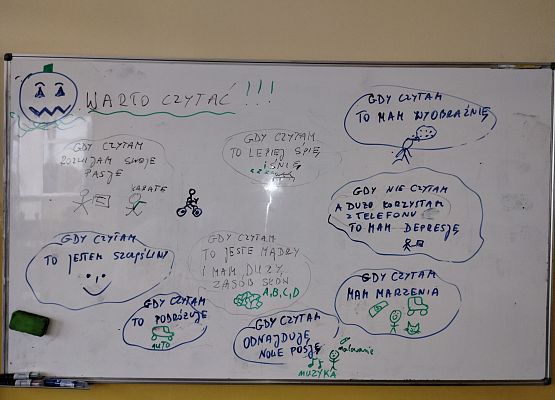 WARTO CZYTAĆ !!!
GDY CZYTAM
TO MAM WYOBRAŹNIĘ
GDY CZYTAM
ROZWIJAM SWOJE
PASJE
KARATE
GDY CZYTAM
TO LEPIEJ ŚPIĘ
I ŚNIĘ
GDY NIE CZYTAM
A DUŻO KORZYSTAM
Z TELEFONU
TO MAM DEPRESJĘ
GDY CZYTAM
TO JESTEM SZCZĘŚLIWY
GDY CZYTAM
TO JESTE MĄDRY
I MAM DUŻY
ZASÓB SŁÓW
A,B,C,D
GDY CZYTAM
MAM MARZENIA
GDY CZYTAM
TO PODRÓŻUJĘ
AUTO
GDY CZYTAM
ODNAJDUJĘ
NOWE PASJE
malowanie
MUZYKA